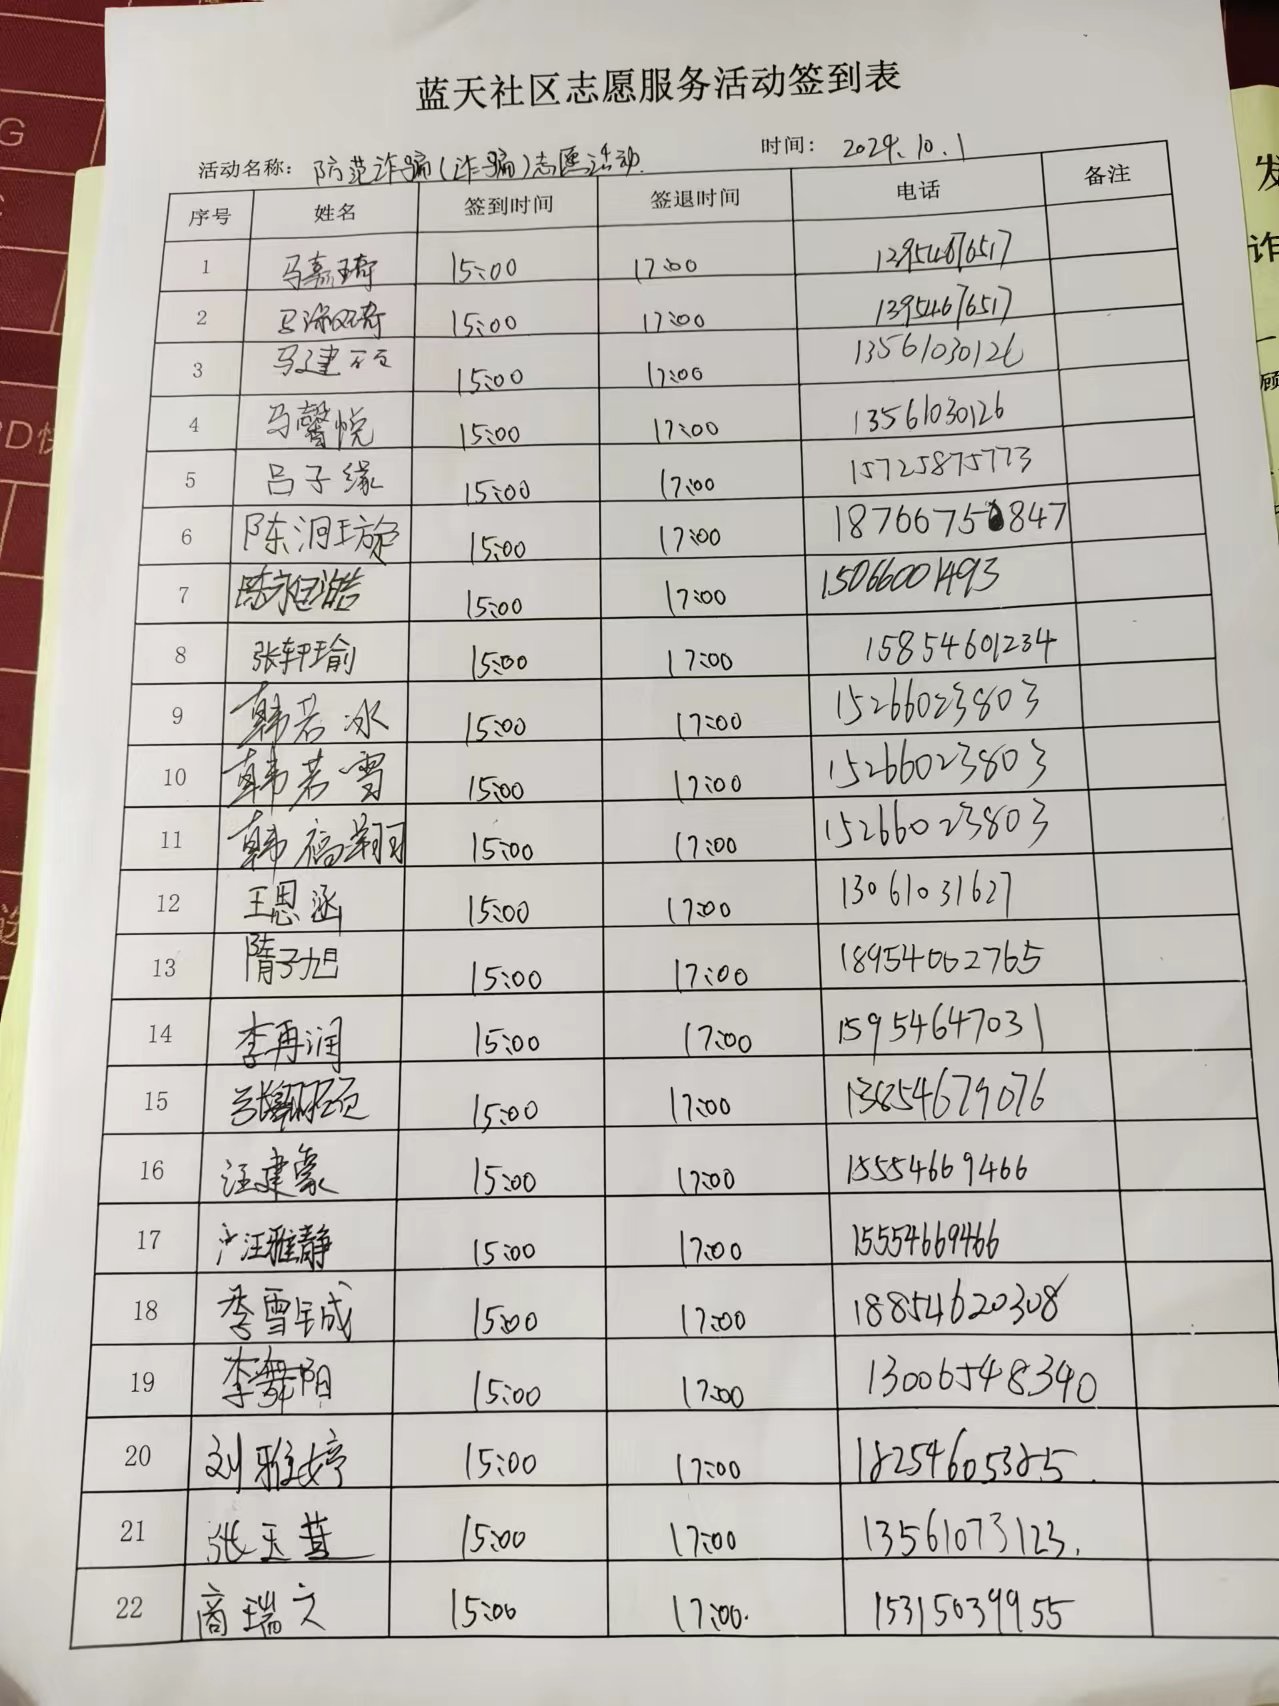 蓝天社区志愿服务活动签到表
活动名称：防范诈骗(诈骗)志愿活动. 时间：2024.10.1
序号 姓名 签到时间 签退时间 电话 备注
1 马嘉琦 15:00 17:00 12954676517
2 马 15:00 17:00 13954676517
3 马建 15:00 17:00 13561030126
4 马馨悦 15:00 17:00 13561030126
5 吕子缘 15:00 17:00 15725875773
6 陈润璇 15:00 17:00 1876675 847
7 陈 浩 15:00 17:00 15066001493
8 张轩瑜 15:00 17:00 15854601234
9 韩若冰 15:00 17:00 15266023803
10 韩若雪 15:00 17:00 15266023803
11 韩福翔 15:00 17:00 15266023803
12 王思涵 15:00 17:00 13061031627
13 隋子旭 15:00 17:00 18954002765
14 李再润 15:00 17:00 15954647031
15 张 15:00 17:00 13854679076
16 汪建豪 15:00 17:00 15554669466
17 汪雅静 15:00 17:00 15554669466
18 李雪成 15:00 17:00 18854620308
19 李舞阳 15:00 17:00 13006548340
20 刘雅婷 15:00 17:00 18254605385.
21 张玉 15:00 17:00 13561073123.
22 商瑞文 15:00 17:00. 15315039955
发
诈
一
顾
G